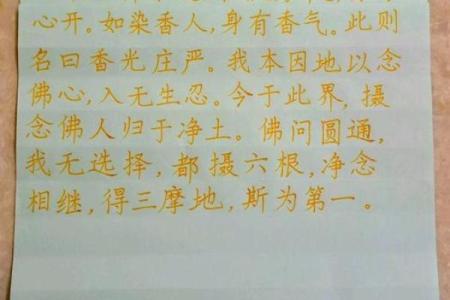 心开。如染香人,身有香气。此则
名曰香光庄严。我本因地以念
佛心,入无生忍。今于此界,摄
念佛人归于净土。佛问圆通,
我无选择,都摄六根,净念
相继,得三摩地,斯为第一。